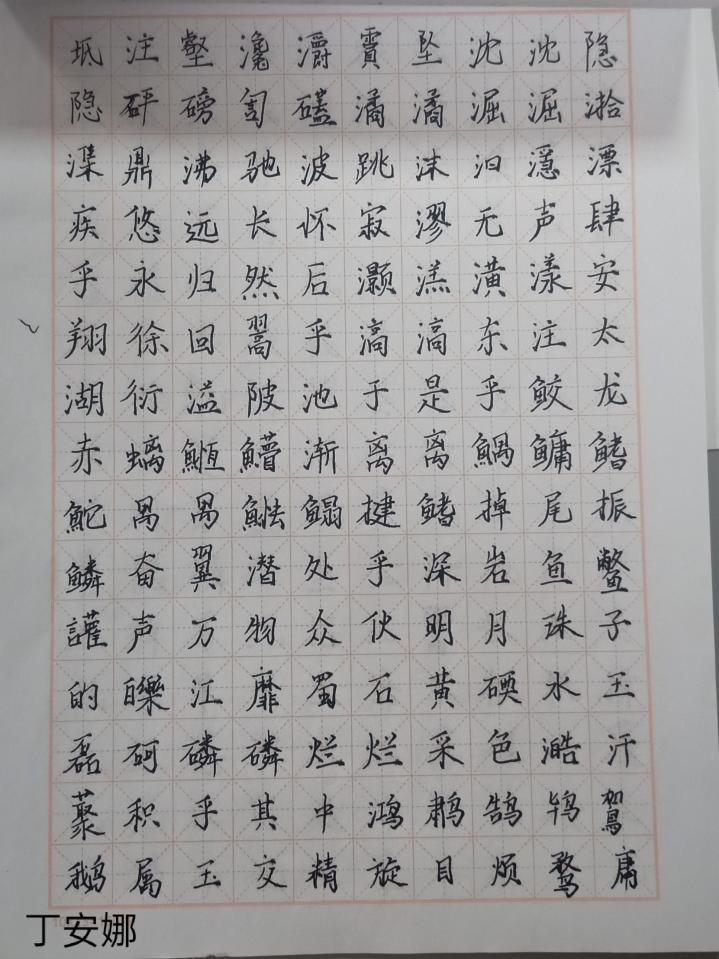 坻注壑瀺灂霣坠沈沈隐
隐砰磅訇礚潏潏淈淈湁
潗鼎沸驰波跳沫汩濦漂
疾悠远长怀寂漻无声肆
乎永归然后灏溔潢漾安
翔徐回翯乎滈滈东注太
湖衍溢陂池于是乎鲛龙
赤螭渐离离鰅鳙鳍
鮀禺禺魼鳎揵鳍掉尾振
鳞奋翼潜处乎深岩鱼鳖
讙声万物众伙明月珠子
的皪江靡蜀石黄碝水玉
磊砢磷磷烂烂采色澔汗
藂积乎其中鸿鹔鹄鸨鴐
鹅属玉交精旋目烦鹜庸
丁安娜